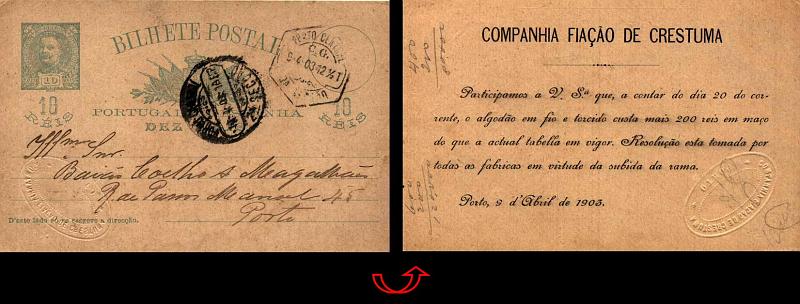 BILHETE POSTAL
10
10
RÉIS
10
RÉIS
PORTUGAL
DEZ
PORTO CENTRAL
9-4-03-12
Illmo Snr.
Bavião Coelho & Magalhães
Rua Passos Manoel 45
Porto
D'este lado só se escreve a direcção.
400
200
80000
COMPANHIA FIAÇÃO DE CRESTUMA
Participamos a V. Sª que, a contar do dia 20 do cor-
rente, o algodão em fio e torcido custa mais 200 reis em maço
do que a actual tabella em vigor. Resolução esta tomada por
todas as fabricas em virtude da subida da rama.
Porto, 9 d'Abril de 1903.
600
200
120.000
COMPANHIA FIAÇÃO DE CRESTUMA
PORTO